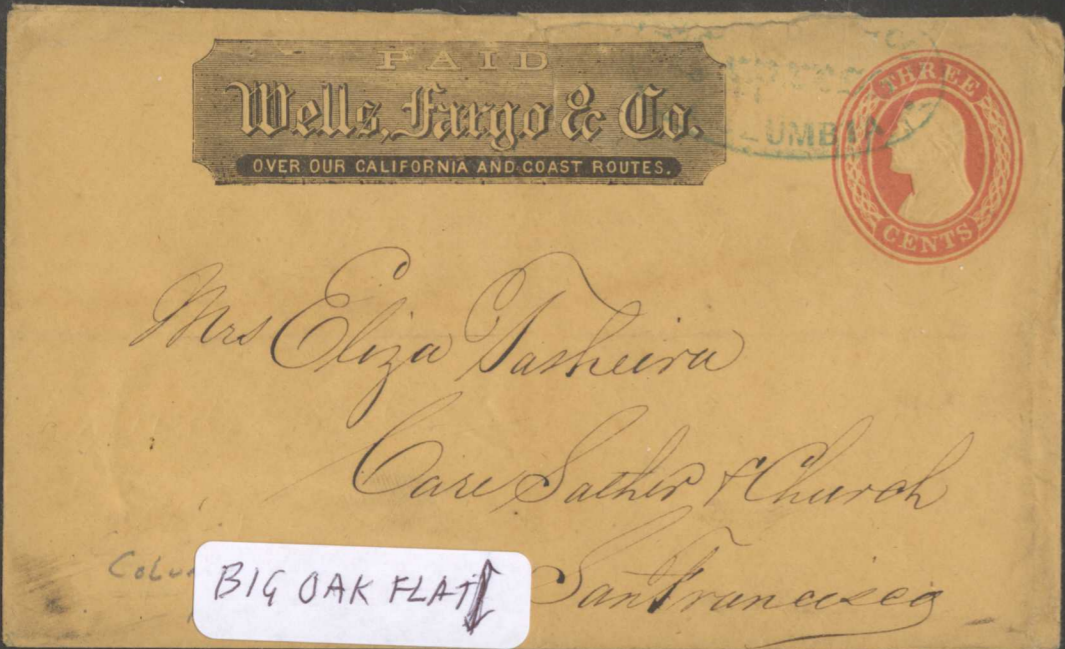 PAID
Wells, Fargo & Co.
OVER OUR CALIFORNIA AND COAST ROUTES.
THREE
CENTS
Mrs Eliza Tasheira
Care Sather & Church
San Francisco
BIG OAK FLAT